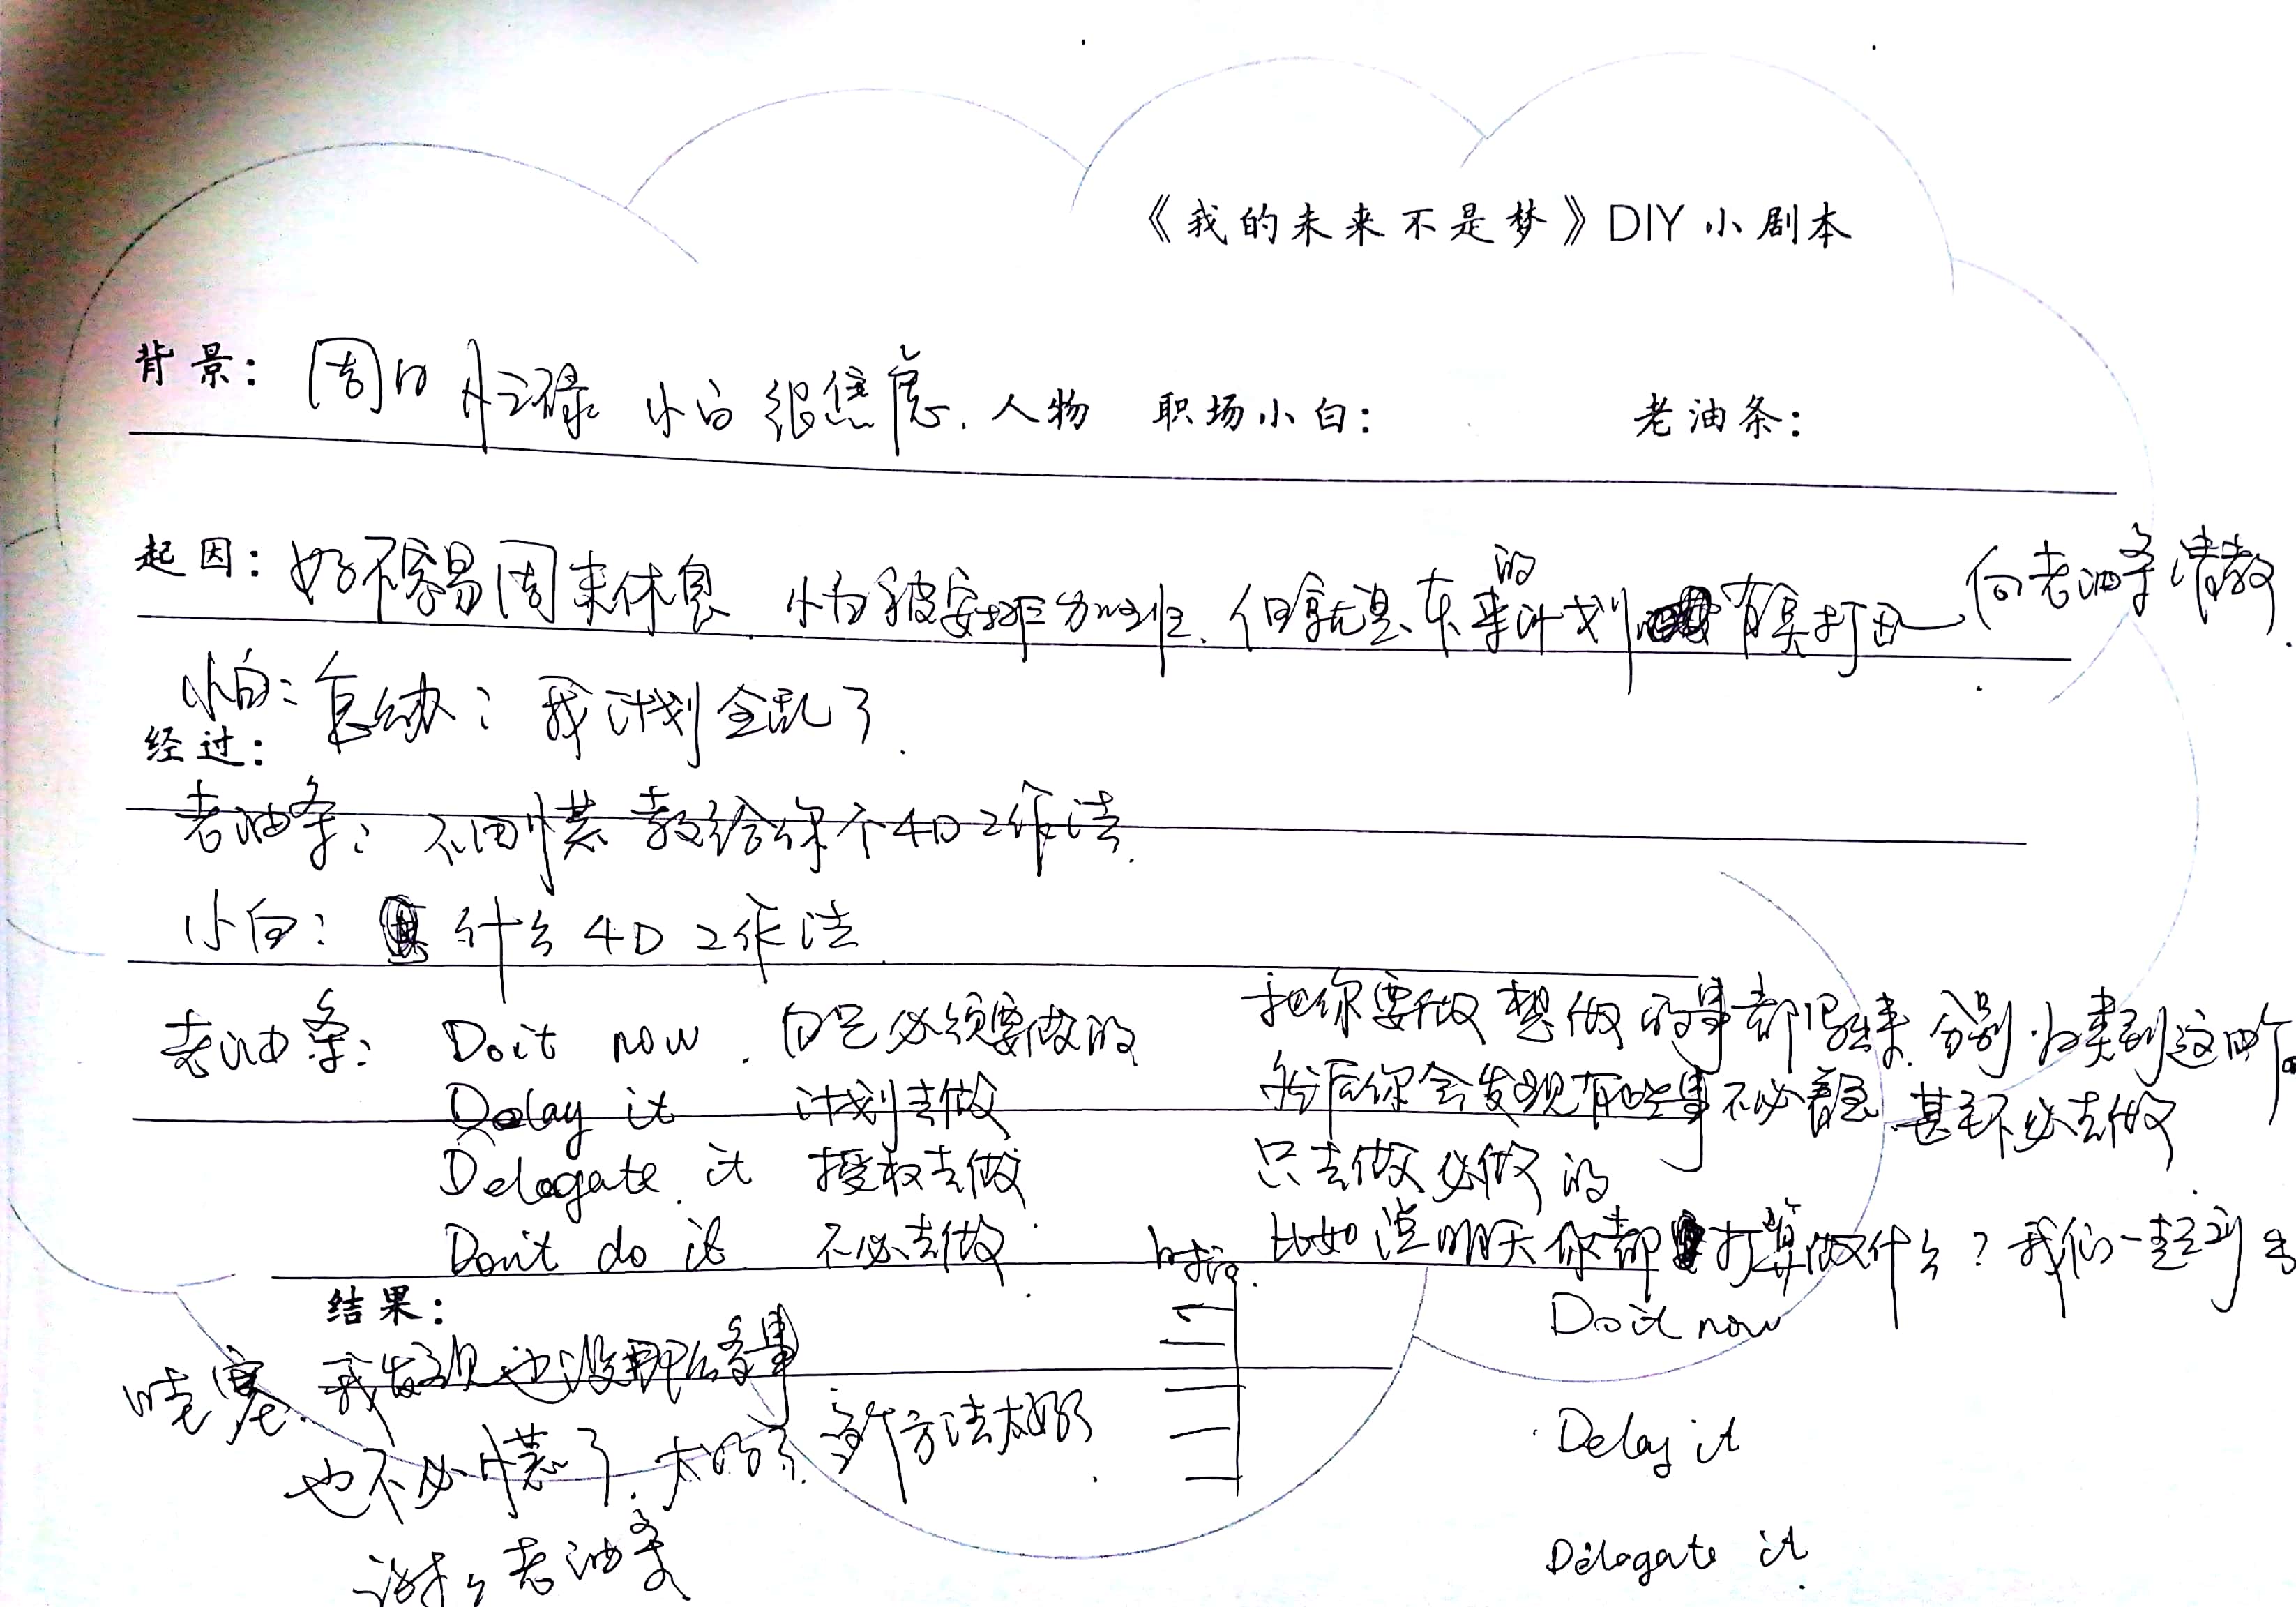 《我的未来不是梦》DIY 小剧本
背景: 周日 忙碌 小白 很焦虑. 人物 职场小白: 老油条:
起因: 好不容易周末休息. 小白被安排加班. 但原来的计划 向老油条请教.
小白: 怎么办: 我计划全乱了.
经过:
老油条: 不用慌 教给你个4D工作法.
小白: 什么4D工作法
老油条: Do it now. 自己必须要做的 把你要做 想做的事都写下来. 分别归类到这四个
Delay it 计划去做 然后你会发现有些事不必着急. 甚至不必去做.
Delegate it 授权去做 只去做必做的
Don't do it 不必去做. 比如说明天你都打算做什么? 我们一起
结果: Do it now
哇塞. 我发现也没那么多事
也不必慌了. 太好了. 这个方法太好了. Delay it
谢谢老油条 Delegate it.